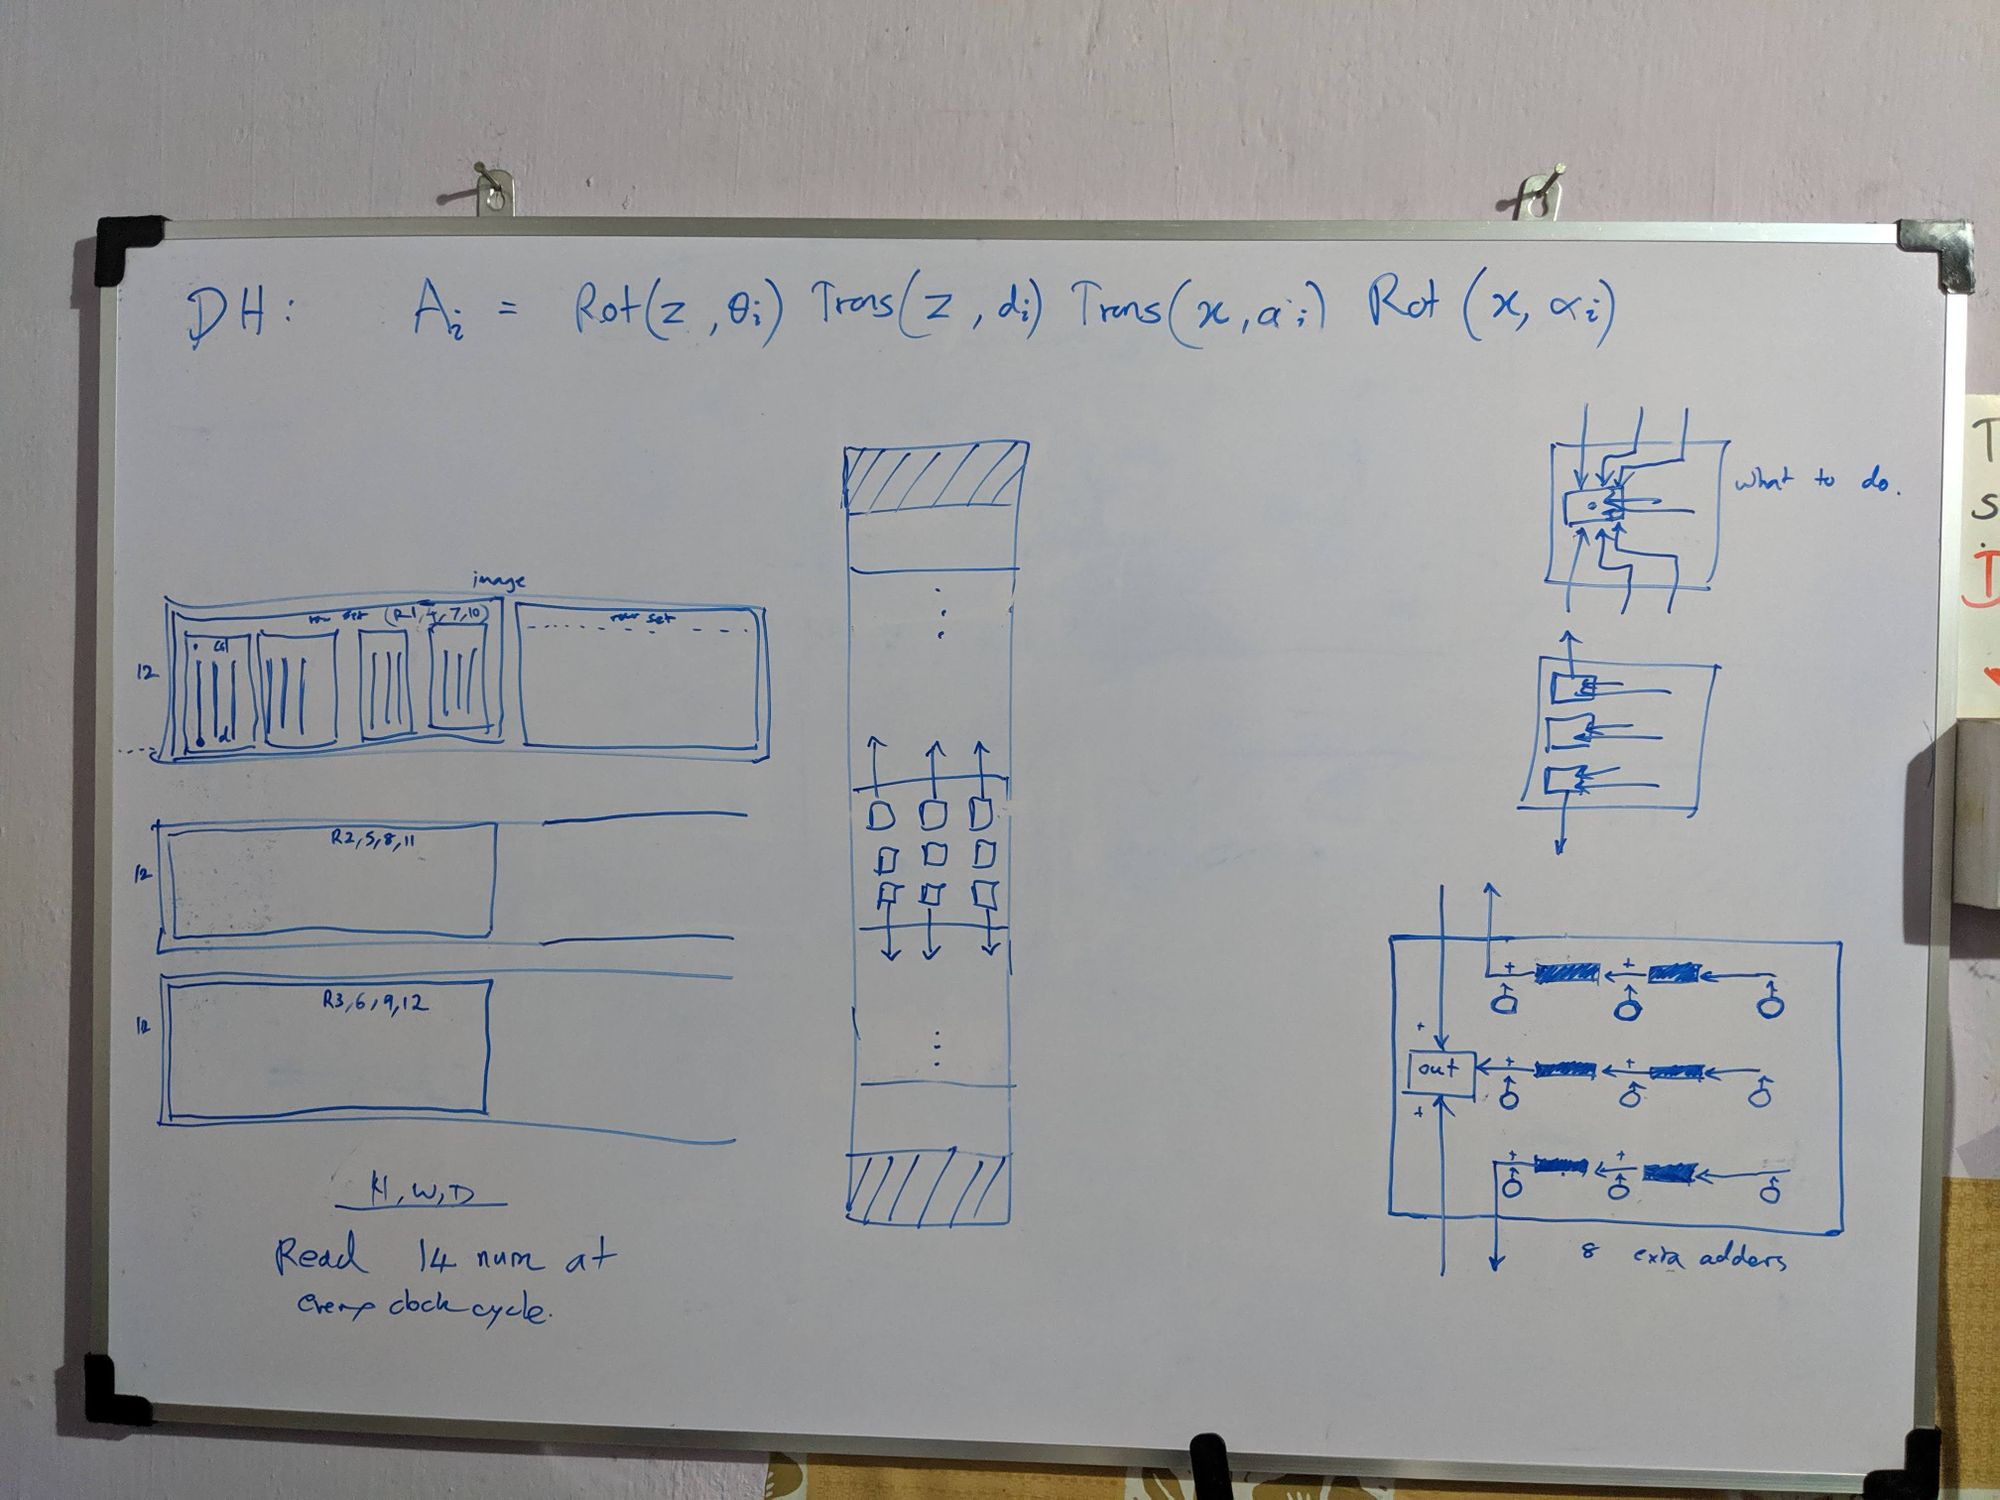 DH: A_i = Rot(z, θ_i) Trans(z, d_i) Trans(x, a_i) Rot(x, α_i)
image
row set (R1, 4, 7, 10)
row set
col
12
R2, 5, 8, 11
12
R3, 6, 9, 12
12
H, W, D
Read 14 num at
every clock cycle.
what to do.
+ +
+
out + +
+
+ +
8 exta adders
T
S